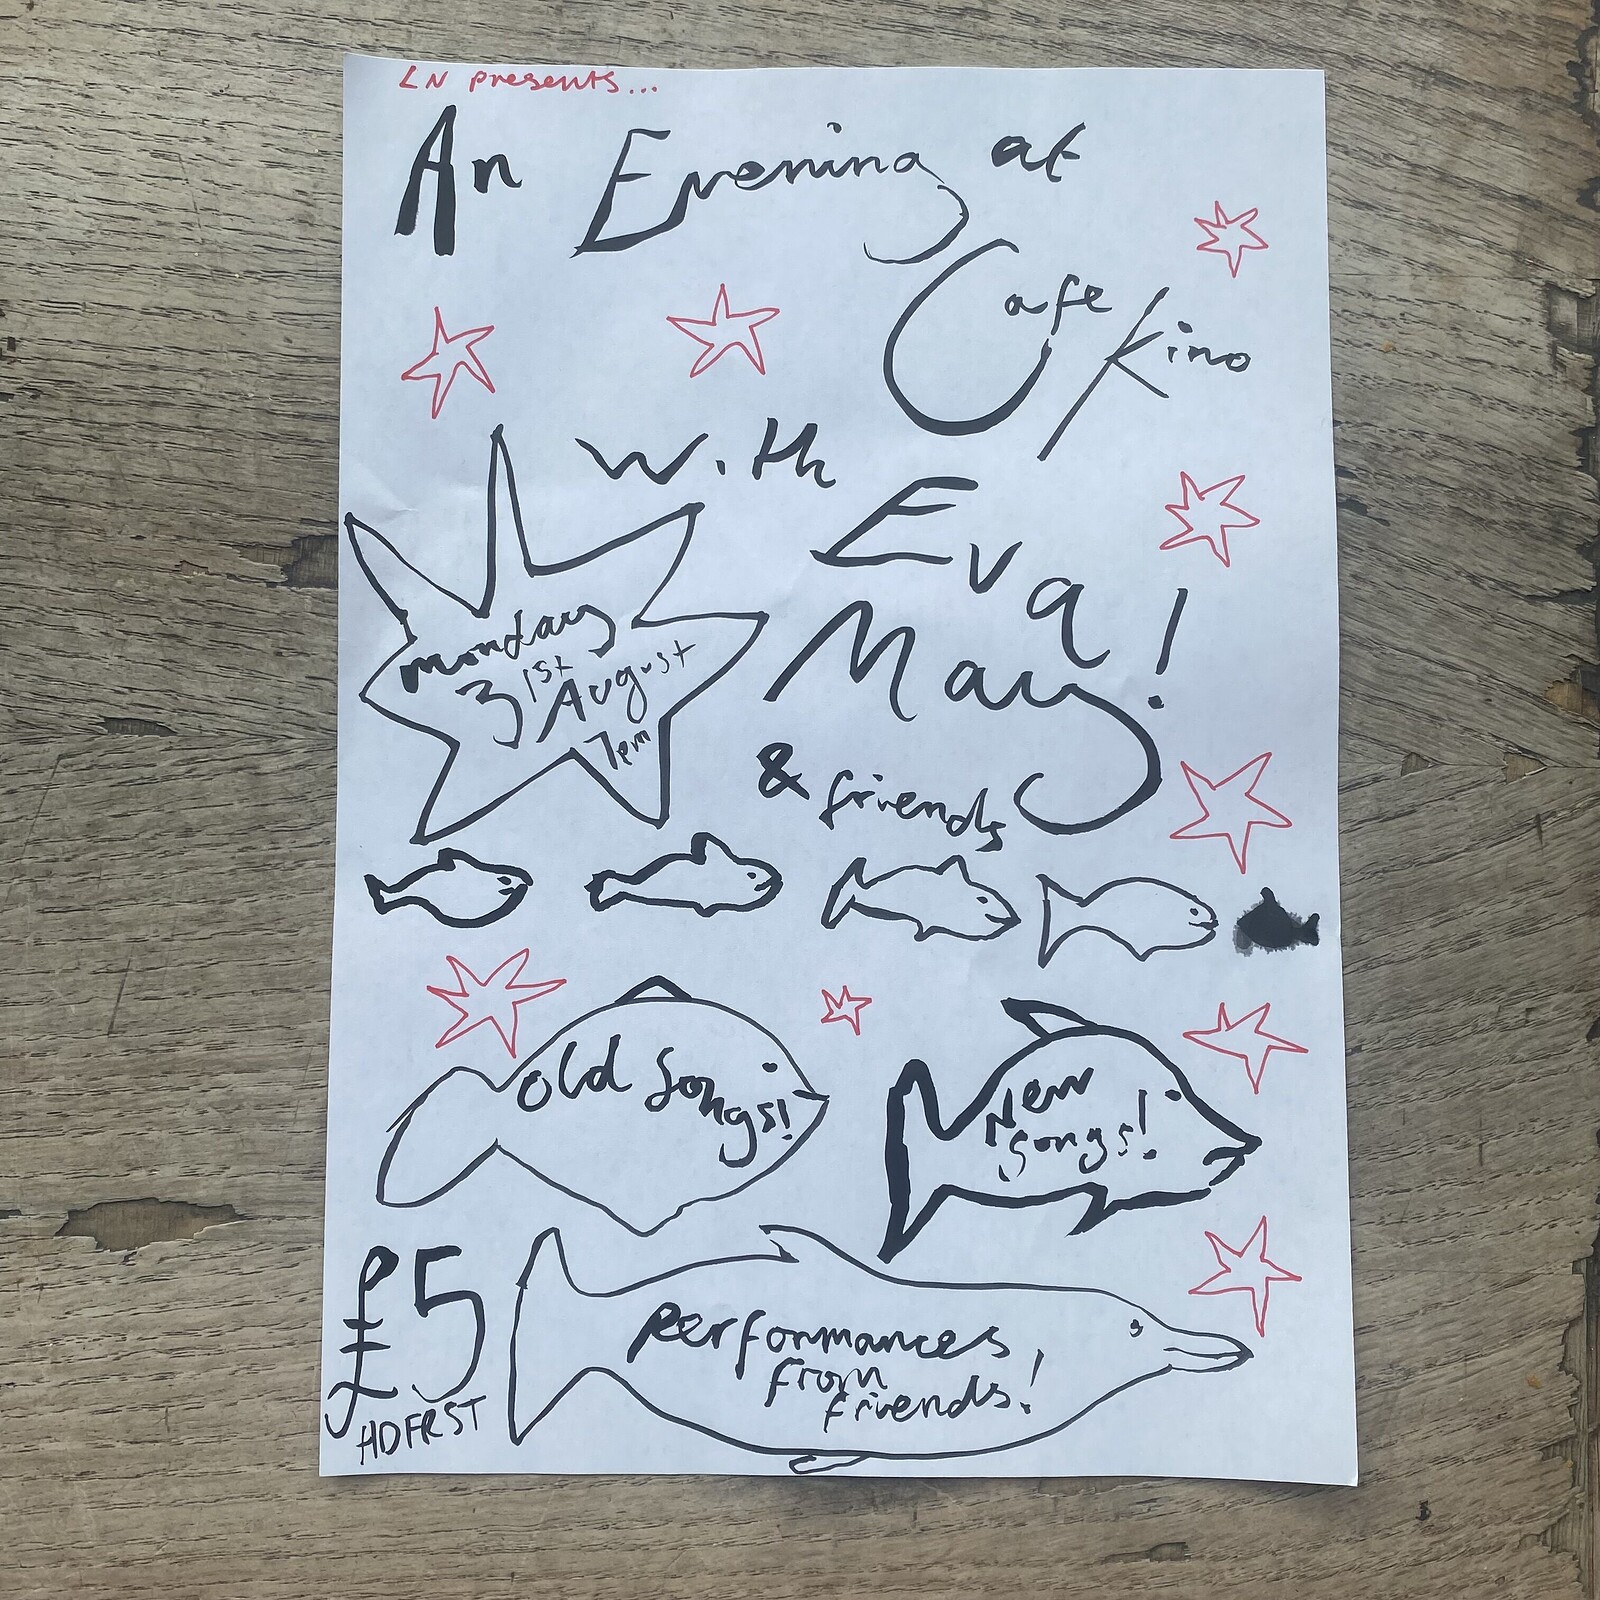 LN presents...
An Evening at
Cafe Kino
with
Eva
May!
& friends
monday
31st
August
7pm
old songs!
New
songs!
£5
HDFRST
performances
from
friends!